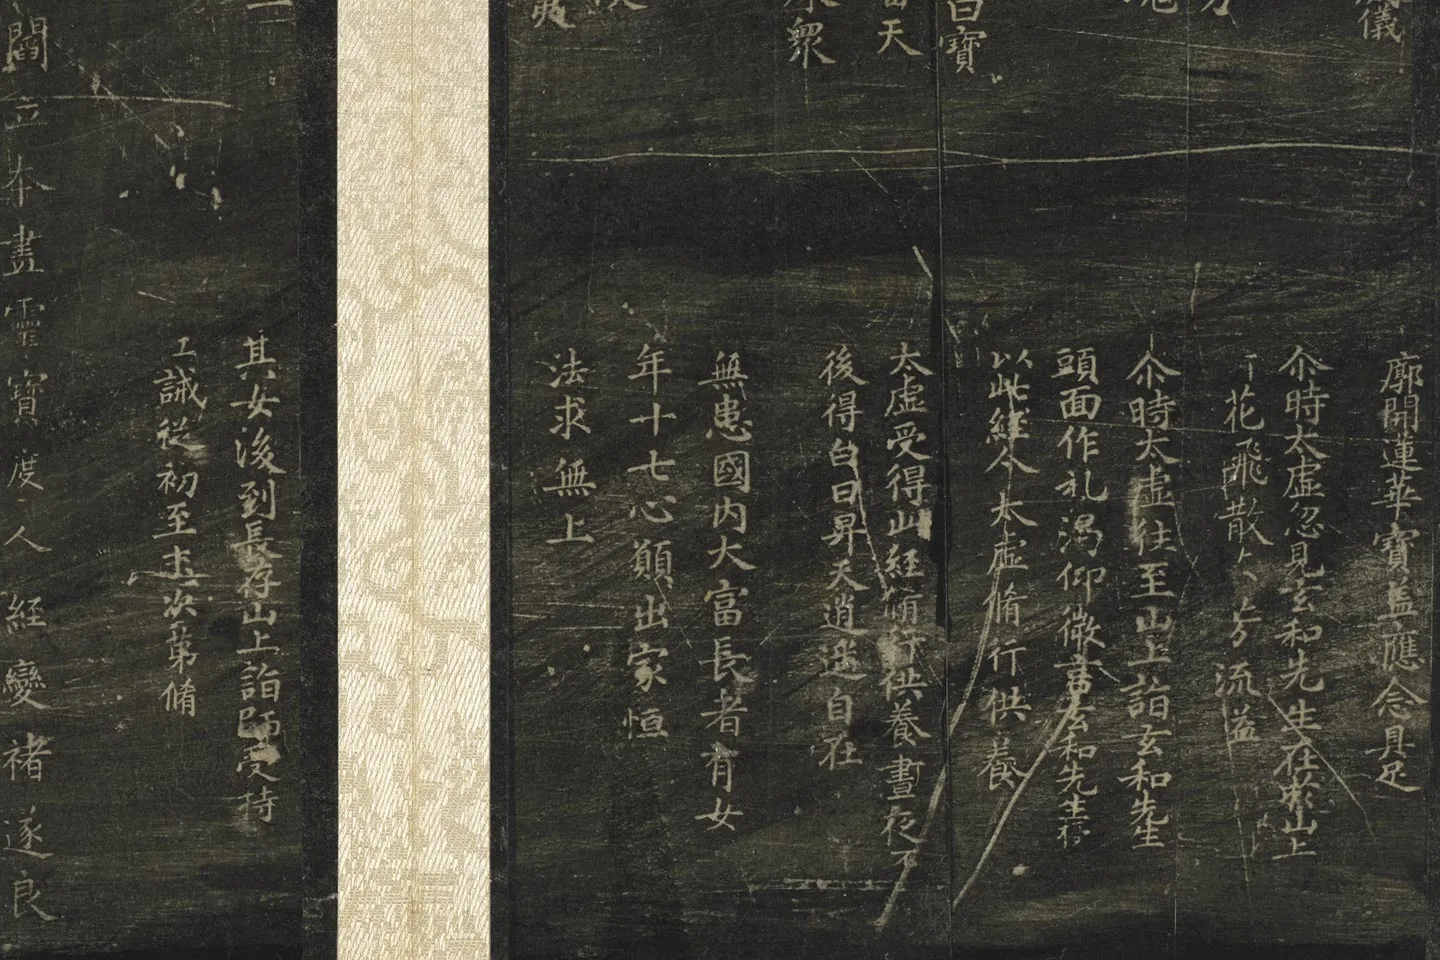 儀
廓開蓮華寶蓋應念具足
尒時太虛忽見玄和先生在崇山上
花飛散流益
尒時太虛往至山上詣玄和先生
頭面作礼渴仰徵章玄和先生授
以此經令太虛脩行供養
白寶
太虛受得此經脩行供養晝夜不
天
後得白日昇天逍遥自在
衆
無患國内大富長者有女
年十七心願出家恒
法求無上
其女後到長存山上詣師受持
誡從初至末次第脩
閻立本畫靈寶度人經變褚遂良